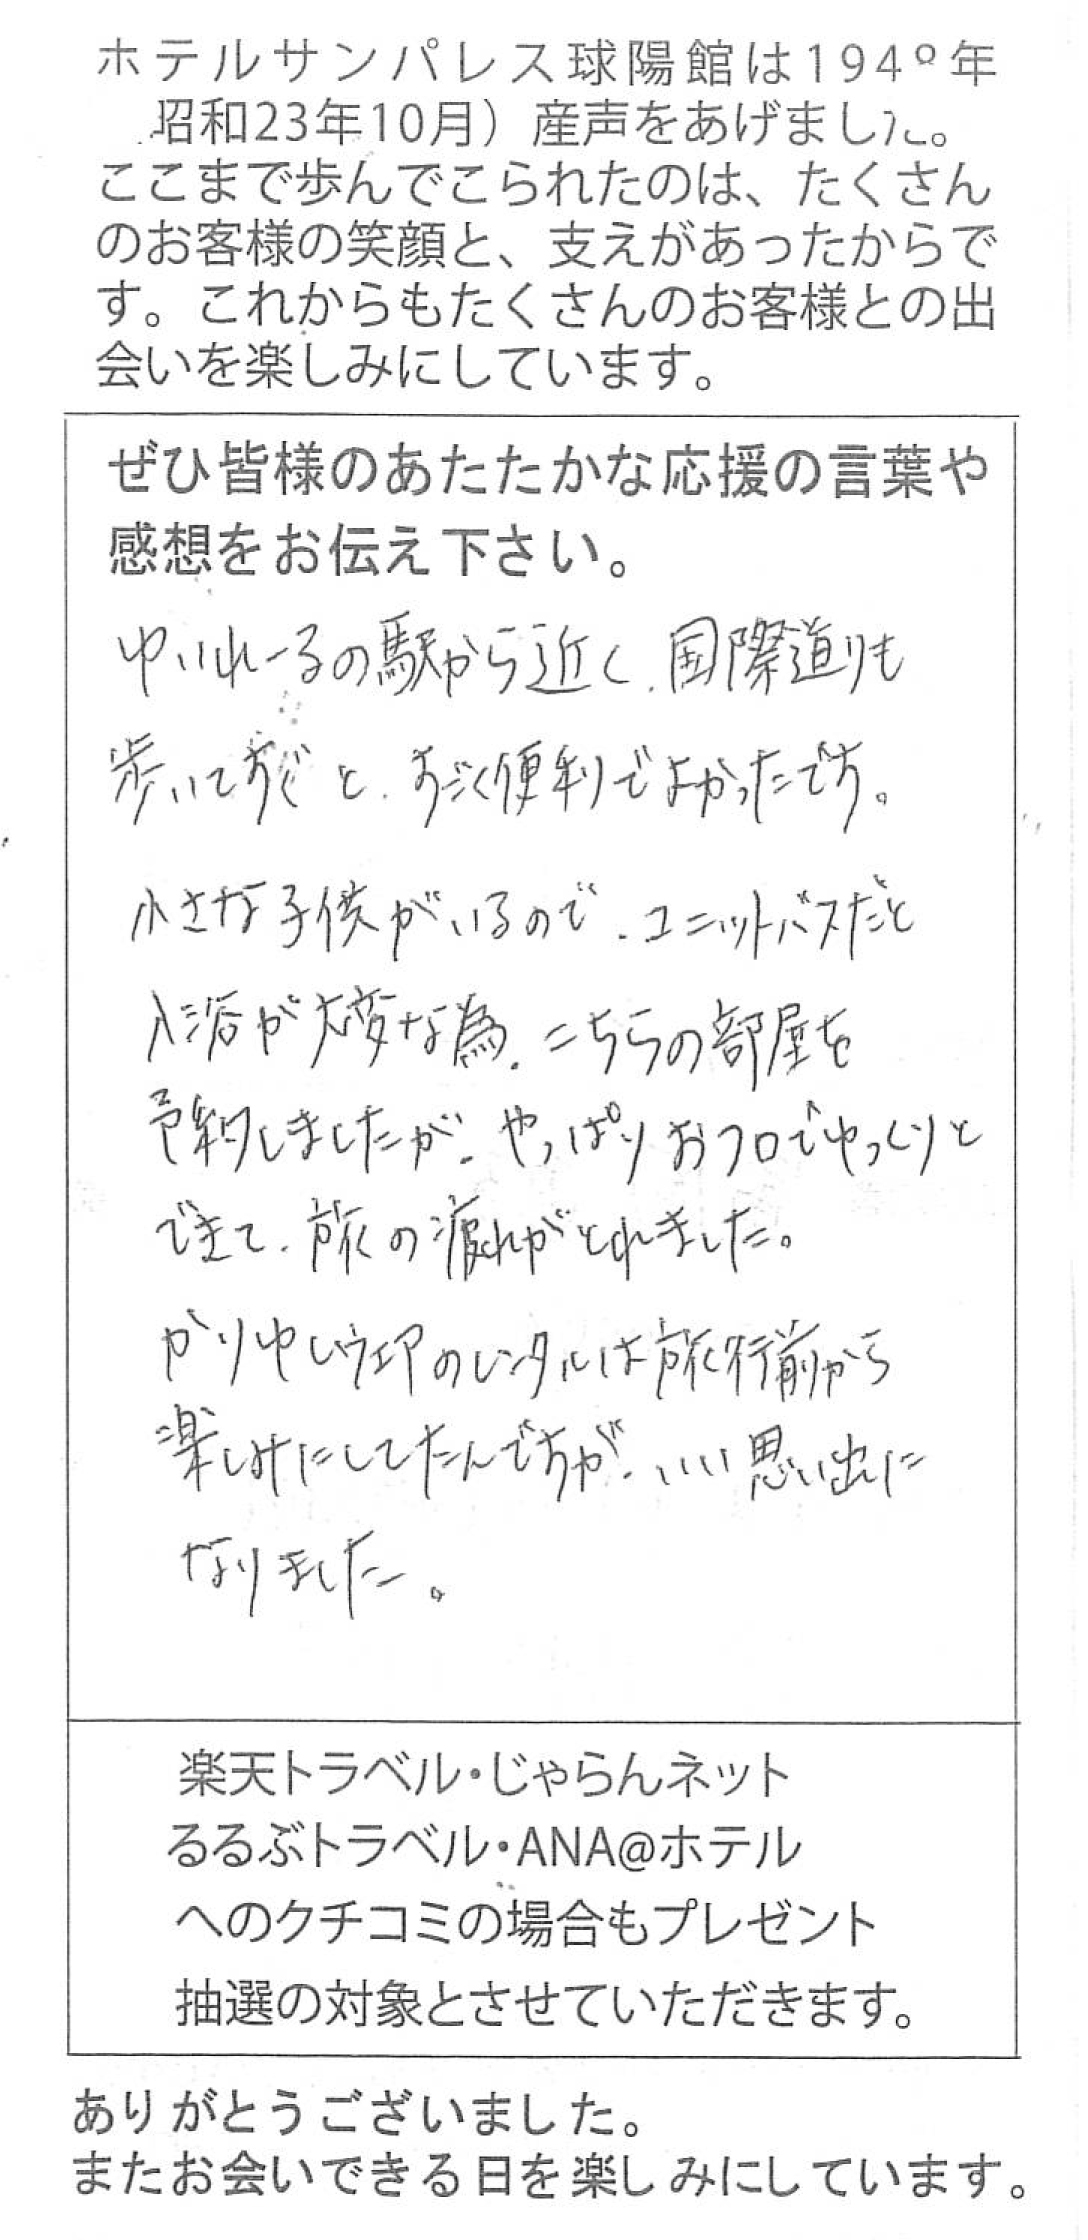 ホテルサンパレス球陽館は1948年
昭和23年10月）産声をあげました。
ここまで歩んでこられたのは、たくさん
のお客様の笑顔と、支えがあったからで
す。これからもたくさんのお客様との出
会いを楽しみにしています。
ぜひ皆様のあたたかな応援の言葉や
感想をお伝え下さい。
ゆいれーるの駅から近く、国際通りも
歩いてすぐと、すごく便利でよかったです。
小さな子供がいるので、ユニットバスだと
入浴が大変な為、こちらの部屋を
予約しましたが、やっぱりおフロでゆっくりと
できて、旅の疲れがとれました。
かりゆしウェアのレンタルは旅行前から
楽しみにしてたんですが、いい思い出に
なりました。
楽天トラベル・じゃらんネット
るるぶトラベル・ANA@ホテル
へのクチコミの場合もプレゼント
抽選の対象とさせていただきます。
ありがとうございました。
またお会いできる日を楽しみにしています。